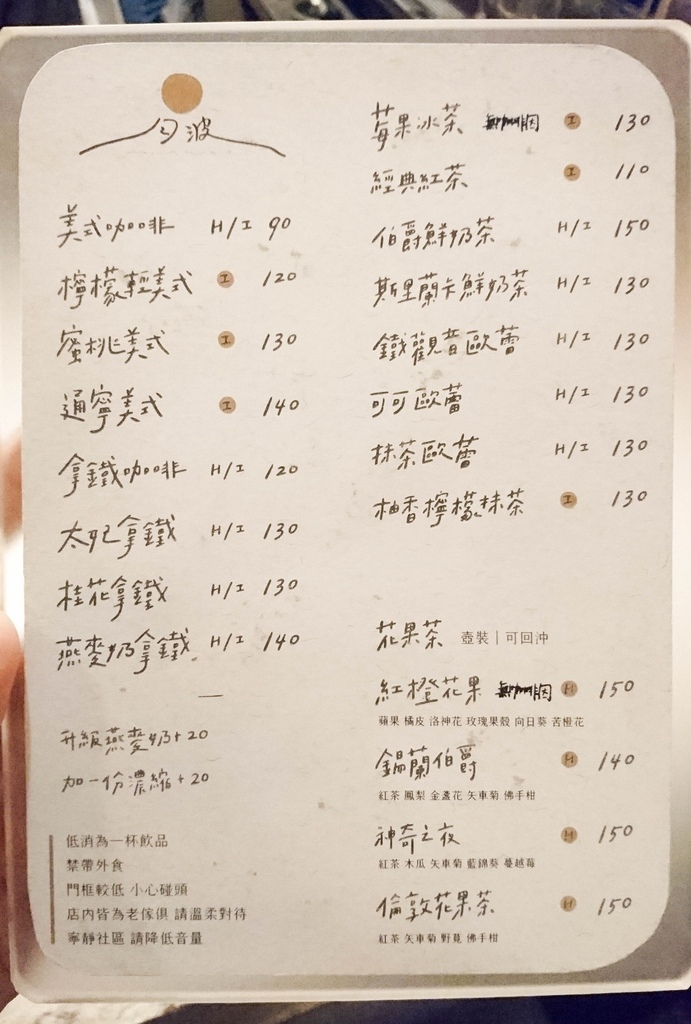 勻波
美式咖啡 H/I 90
檸檬輕美式 I 120
蜜桃美式 I 130
通寧美式 I 140
拿鐵咖啡 H/I 120
太妃拿鐵 H/I 130
桂花拿鐵 H/I 130
燕麥奶拿鐵 H/I 140
升級燕麥奶+20
加一份濃縮+20
低消為一杯飲品
禁帶外食
門框較低 小心碰頭
店內皆為老傢俱 請溫柔對待
寧靜社區 請降低音量
莓果冰茶 I 130
經典紅茶 I 110
伯爵鮮奶茶 H/I 150
斯里蘭卡鮮奶茶 H/I 130
鐵觀音歐蕾 H/I 130
可可歐蕾 H/I 130
抹茶歐蕾 H/I 130
柚香檸檬抹茶 I 130
花果茶 壺裝|可回沖
紅橙花果 H 150
蘋果 橘皮 洛神花 玫瑰果殼 向日葵 苦橙花
錫蘭伯爵 H 140
紅茶 鳳梨 金盞花 矢車菊 佛手柑
神奇之夜 H 150
紅茶 木瓜 矢車菊 藍錦葵 蔓越莓
倫敦花果茶 H 150
紅茶 矢車菊 野莧 佛手柑